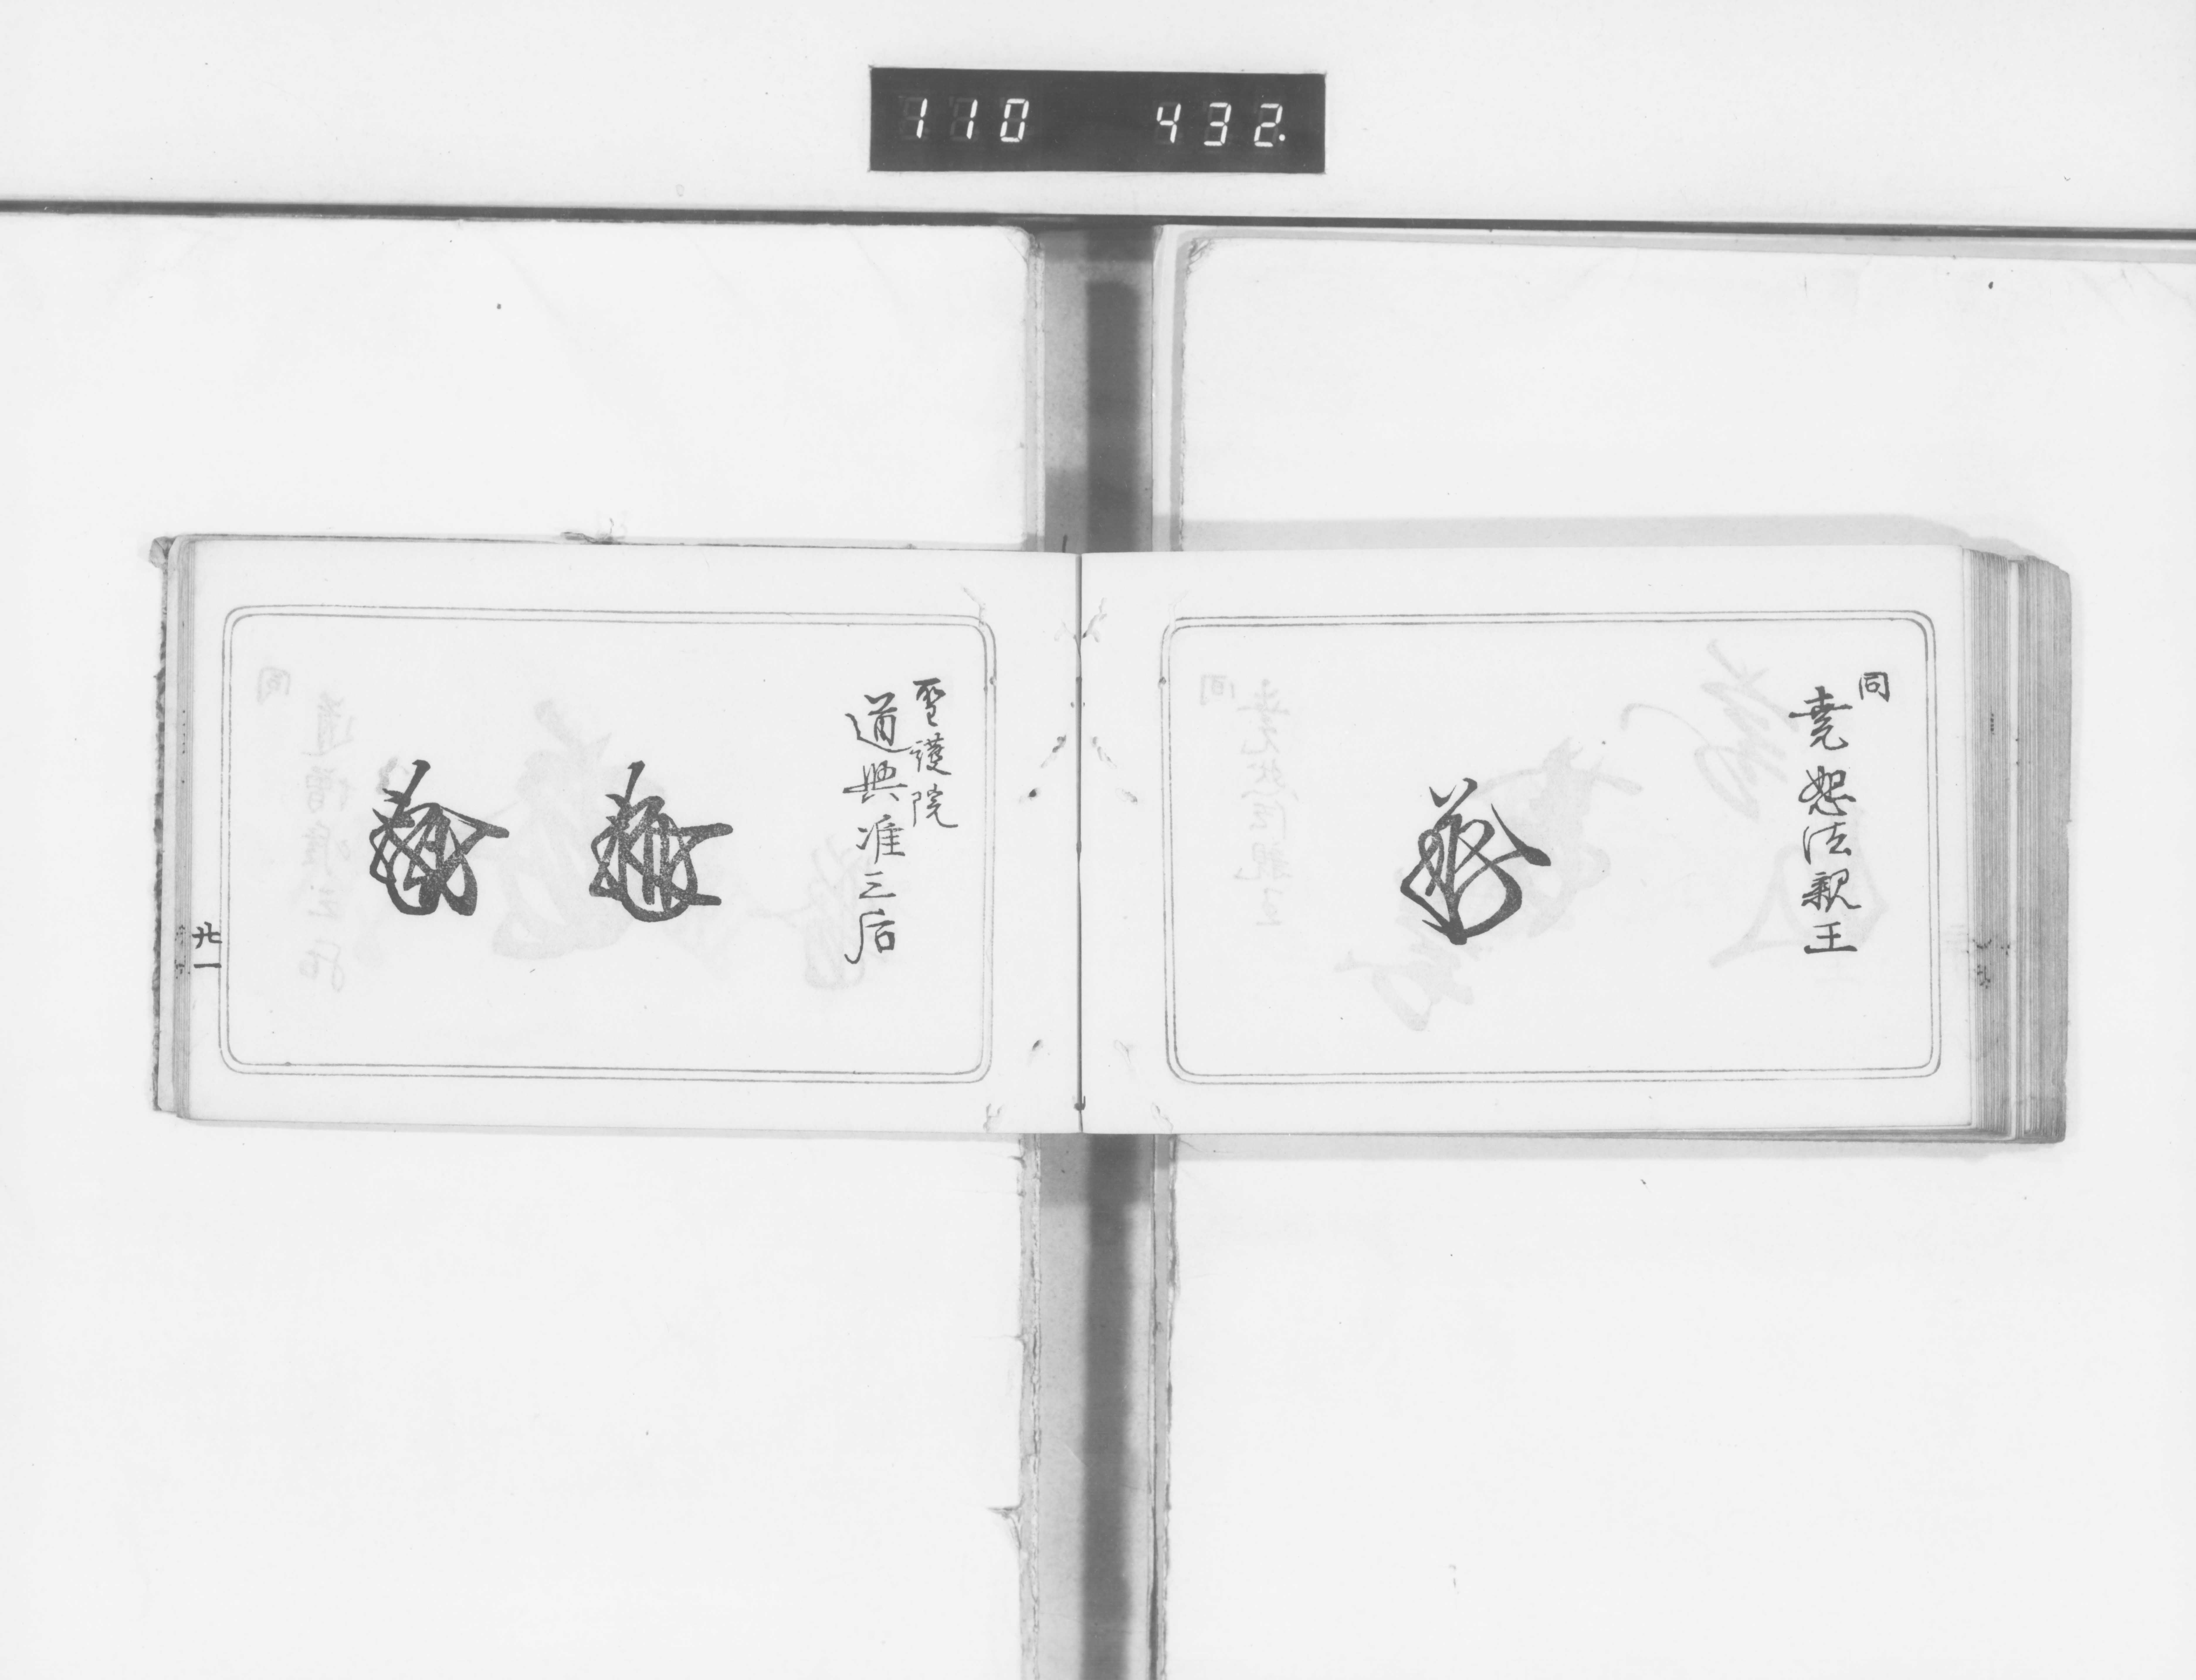 110 432.
同
堯恕法親王
聖護院
道興准三后
廿一